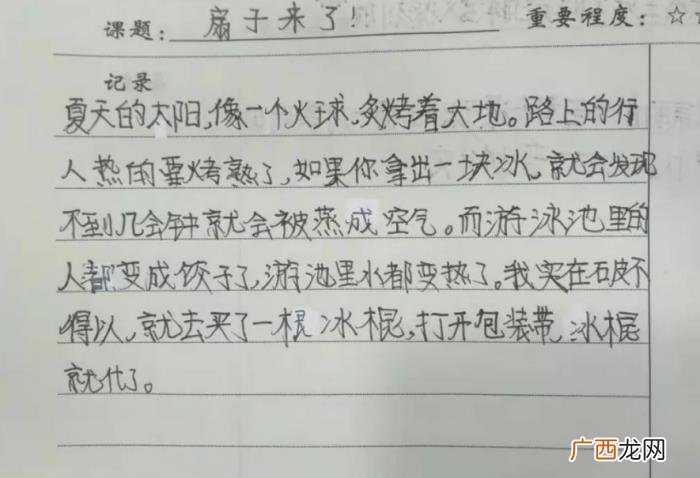 课题：扇子来了！ 重要程度：☆
记录
夏天的太阳，像一个火球，炙烤着大地。路上的行
人热的要烤熟了，如果你拿出一块冰，就会发现
不到几会钟就会被蒸成空气。而游泳池里的
人都变成饺子了，游池里水都变热了。我实在破不
得以，就去买了一棍冰棍，打开包装带，冰棍
就化了。
广西龙网